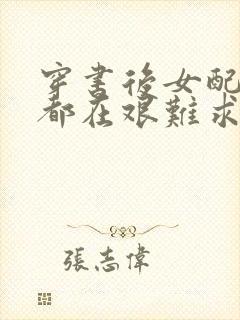 穿書後女配
都在艱難求
張志偉